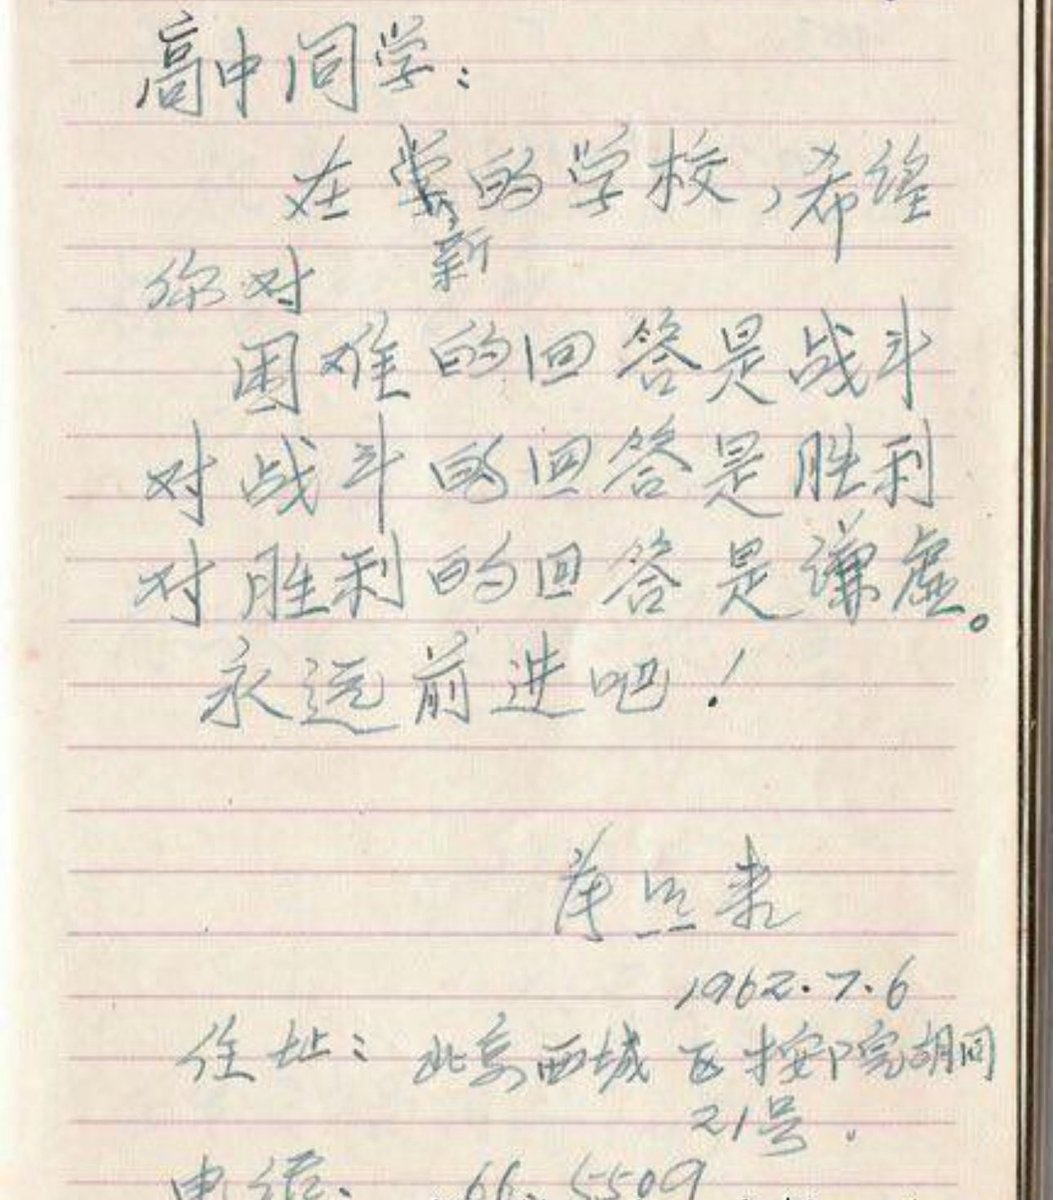 高中同学:
在新的学校,希望
你对
困难的回答是战斗
对战斗的回答是胜利
对胜利的回答是谦虚。
永远前进吧!
1962.7.6
住址:北京西城区按院胡同
21号.
电话. 66.5509